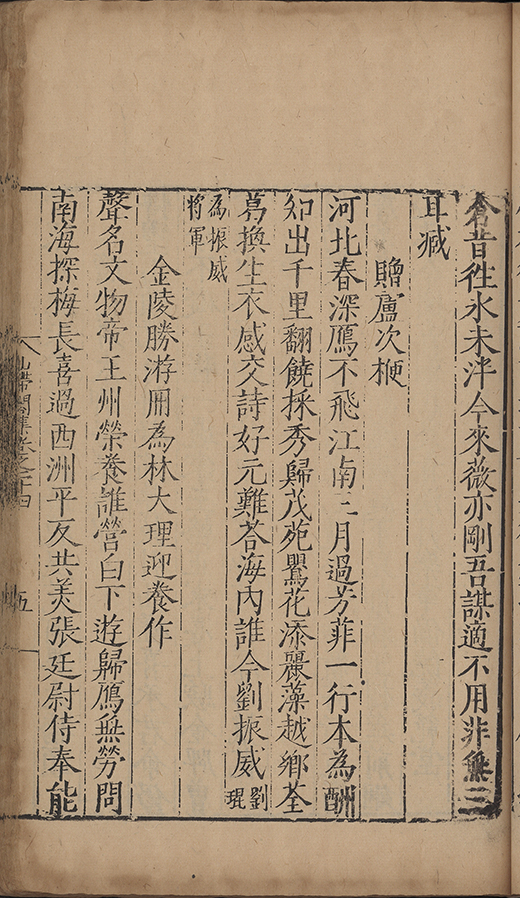 昔徃水未泮今來薇亦剛吾謀適不用非無三
耳臧
贈盧次楩
河北春深鴈不飛江南三月過芳菲一行本為酬
知出千里翻饒採秀歸茂苑鸎花添麗藻越鄉荃
葛換生衣感交詩好元難荅海內誰今劉振威劉琨
為振威
將軍
金陵勝游冊為林大理迎養作
聲名文物帝王州榮養誰營白下遊歸鴈無勞問
南海探梅長喜過西洲平反共羙張廷尉侍奉能
五